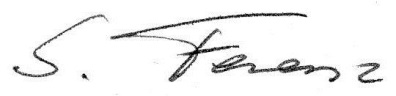 S. Ferenz